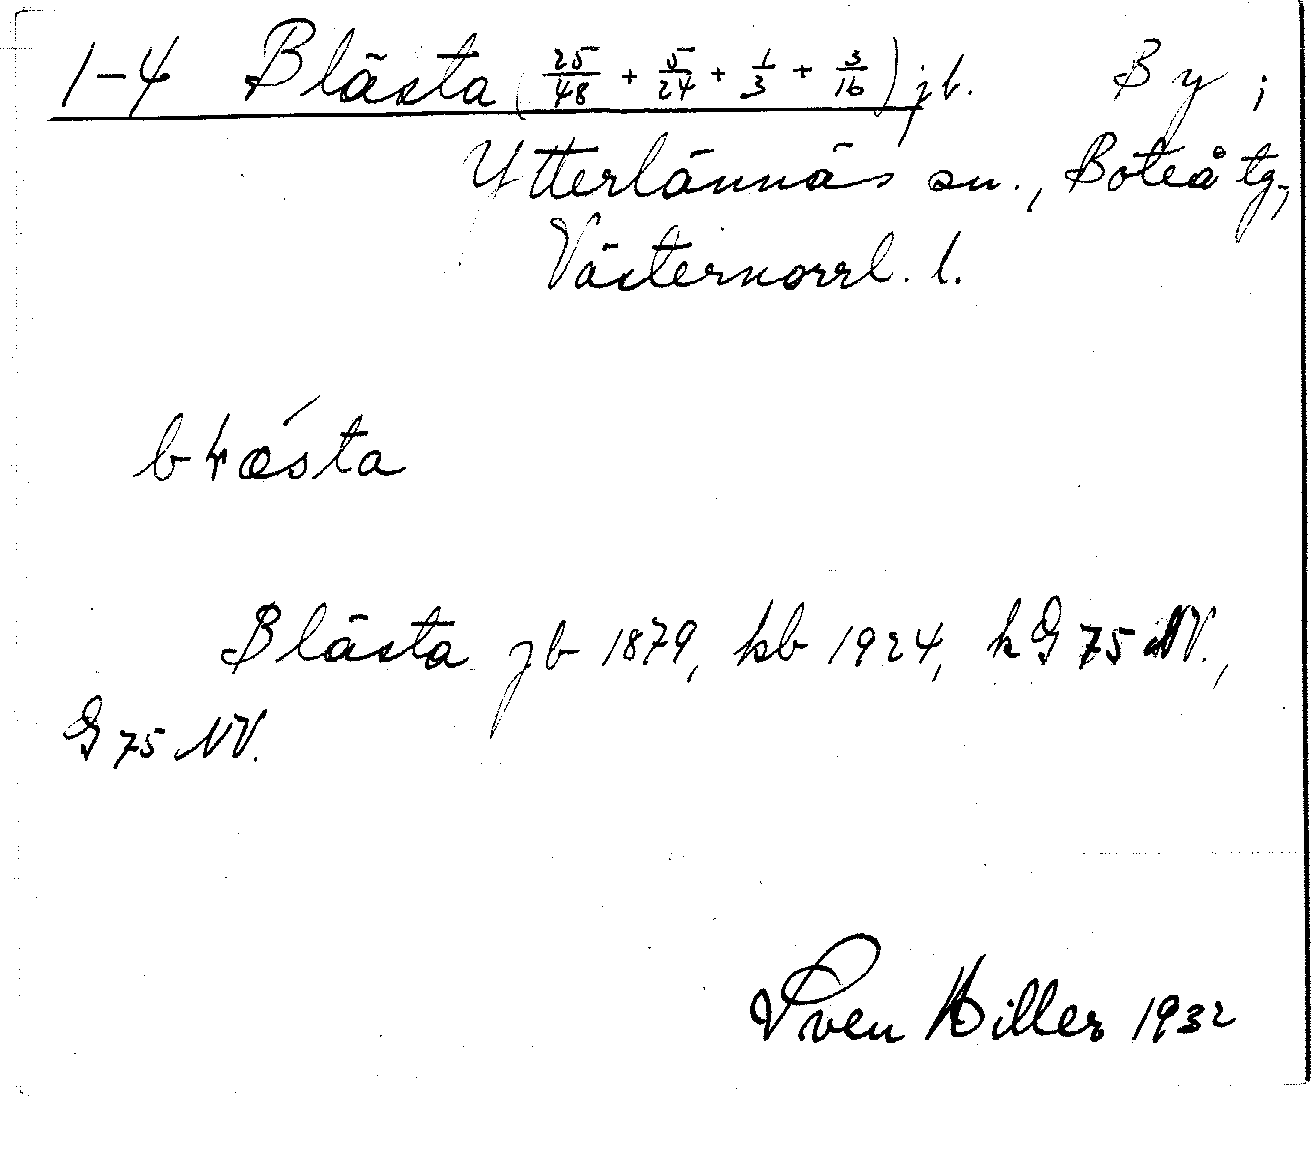 1-4 Blästa (25/48 + 5/24 + 1/3 + 3/16) jb. By i
Ytterlännäs sn., Boteå tg,
Västernorrl. l.
Blästa jb 1879, kb 1924, kG 75 NV.,
G 75 NV.
Sven Hiller 1932